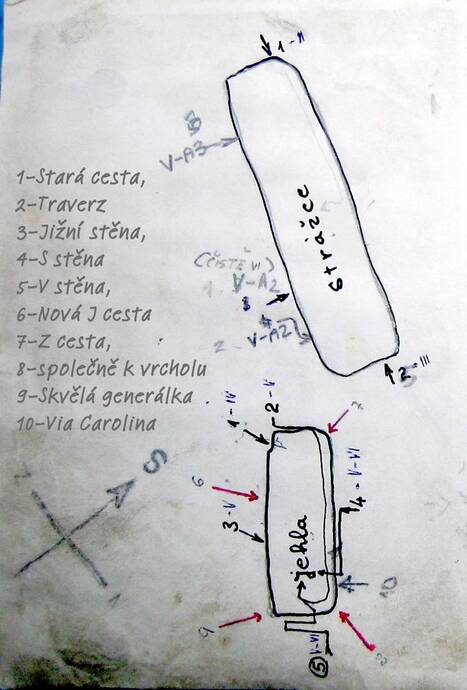 1-Stará cesta,
2-Traverz
3-Jižní stěna,
4-S stěna
5-V stěna,
6-Nová J cesta
7-Z cesta,
8-společně k vrcholu
9-Skvělá generálka
10-Via Carolina
1-II
V-A3
strážce
(čistě VI)
1 V-A2
2 V-A2
III
1-IV
2-V
7
6
3-V
4-V-VI
jehla
10
9
5 V-VI
8
S